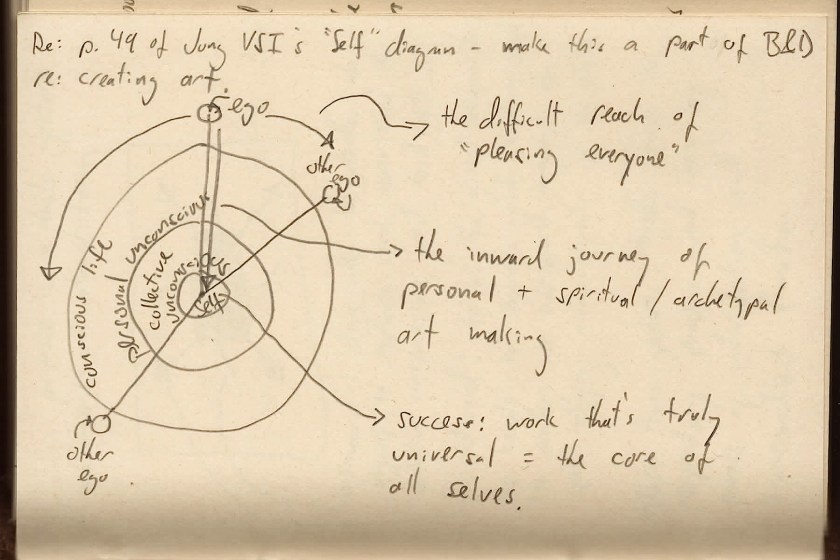 Re: p. 49 of Jung VSI's "Self" diagram - make this a part of B&D
re: creating art.
ego
the difficult reach of
"pleasing everyone"
other
ego
unconscious
life
conscious
personal
collective
unconscious
Self
the inward journey of
personal + spiritual / archetypal
art making
success: work that's truly
universal = the core of
all selves.
other
ego